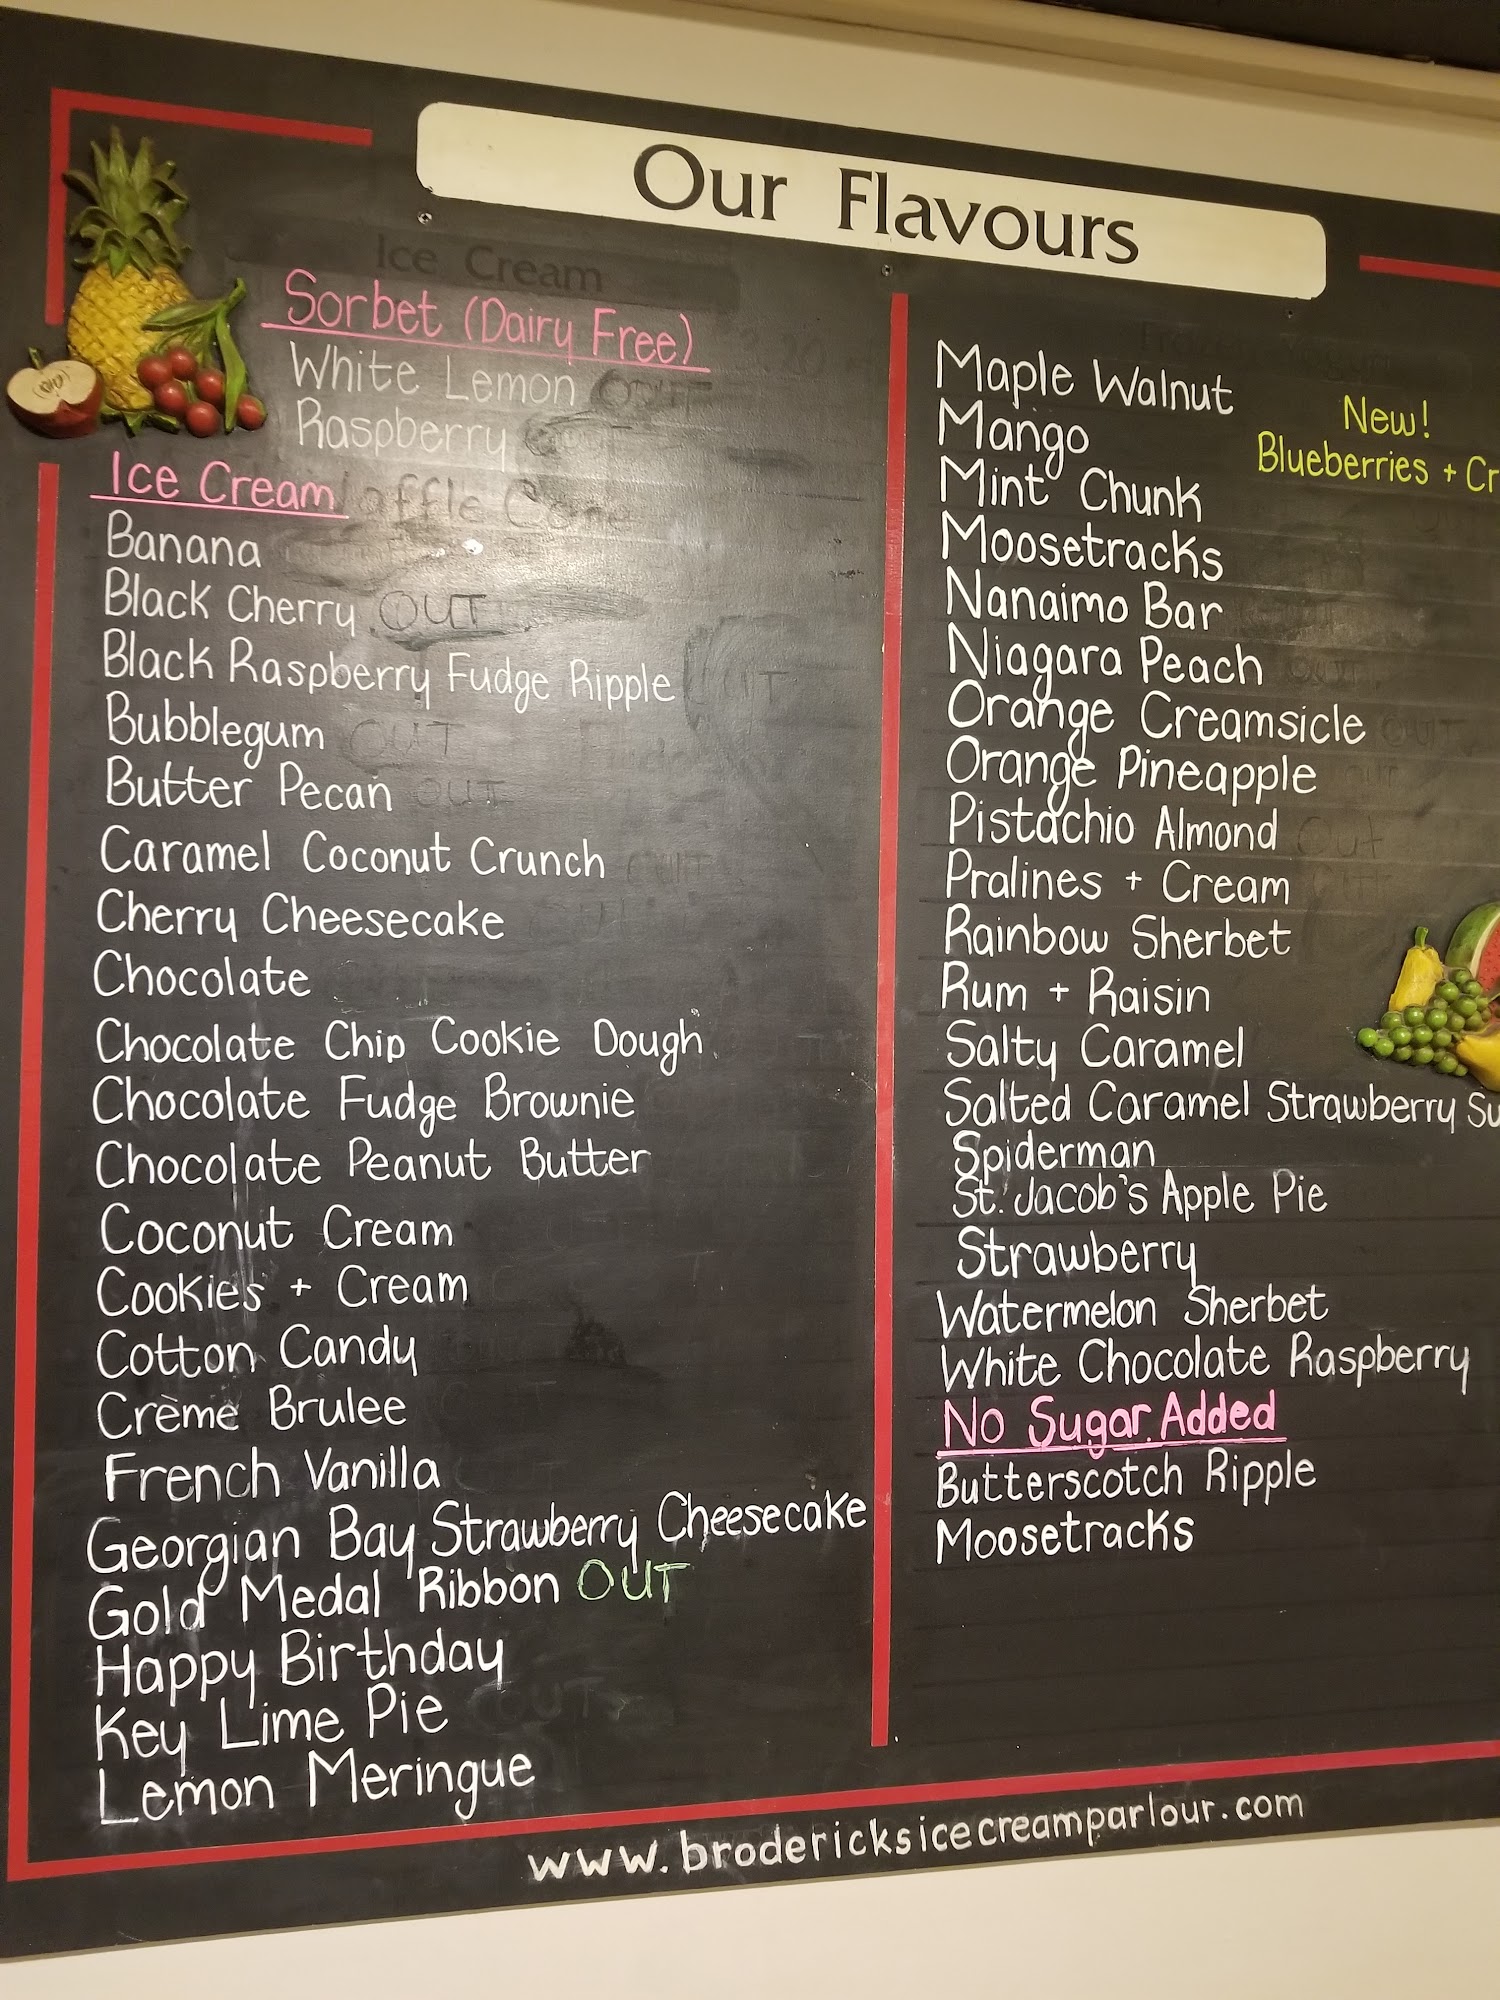 Our Flavours
Ice Cream
Sorbet (Dairy Free)
White Lemon OUT
Raspberry
Ice Cream
Banana
Black Cherry OUT
Black Raspberry Fudge Ripple OUT
Bubblegum OUT
Butter Pecan OUT
Caramel Coconut Crunch OUT
Cherry Cheesecake
Chocolate
Chocolate Chip Cookie Dough
Chocolate Fudge Brownie
Chocolate Peanut Butter
Coconut Cream
Cookies + Cream
Cotton Candy
Crème Brulee
French Vanilla
Georgian Bay Strawberry Cheesecake
Gold Medal Ribbon OUT
Happy Birthday
Key Lime Pie OUT
Lemon Meringue
Maple Walnut
Mango
Mint Chunk
Moosetracks
Nanaimo Bar
Niagara Peach OUT
Orange Creamsicle OUT
Orange Pineapple out
Pistachio Almond Out
Pralines + Cream
Rainbow Sherbet
Rum + Raisin
Salty Caramel
Salted Caramel Strawberry Su
Spiderman
St. Jacob's Apple Pie
Strawberry
Watermelon Sherbet
White Chocolate Raspberry
No Sugar Added
Butterscotch Ripple
Moosetracks
New!
Blueberries + Cr
www.brodericksicecreamparlour.com